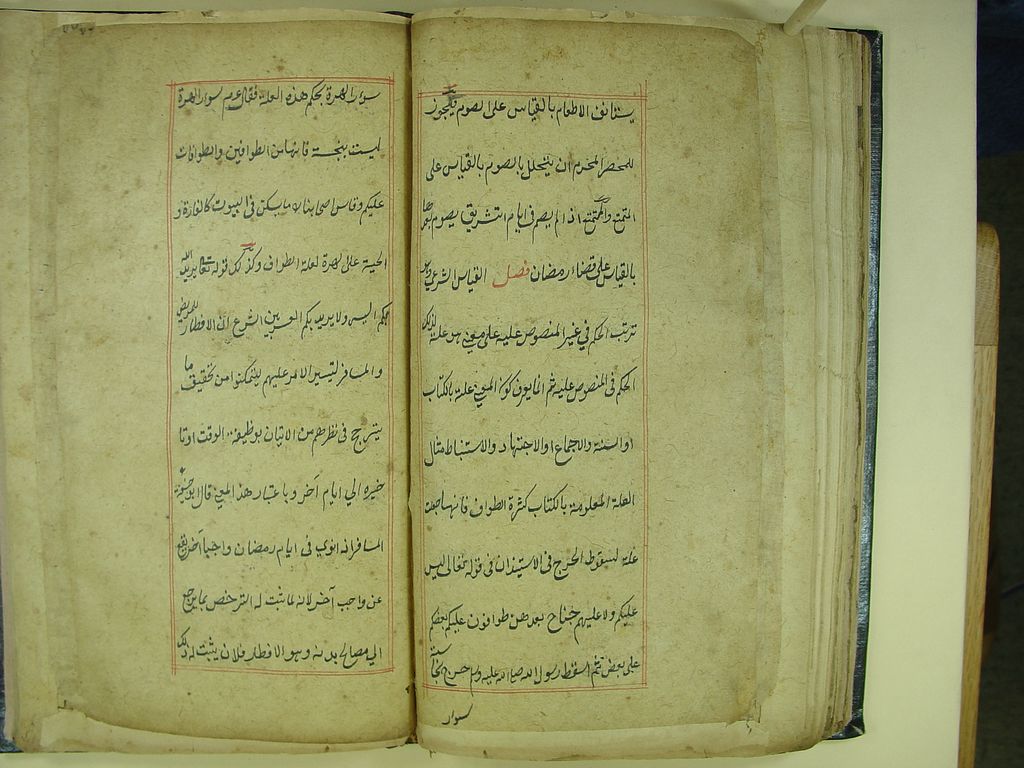 يستانف الاطعام بالقياس على الصوم ويجوز
للمحصر المحرم ان يتحلل بالصوم بالقياس على
المتمتع والمتمتع اذا لم يصم في ايام التشريق يصوم بعدها
بالقياس على قضاء رمضان فصل القياس الشرعي
ترتب الحكم في غير المنصوص عليه على معنى هو علة لذلك
الحكم في المنصوص عليه ثم انما يعرف كون المعنى علة بالكتاب
او السنة والاجماع او الاجتهاد والاستنباط مثال
العلة المعلومة بالكتاب كثرة الطواف فانها جعلت
علة لسقوط الحرج في الاستيذان في قوله تعالى ليس
عليكم ولا عليهم جناح بعدهن طوافون عليكم بعضكم
على بعض ثم اسقط رسول الله صلى الله عليه وسلم حرج نجاسة
سوار
سوار الهرة بحكم هذه العلة فقال عم سوار الهرة
ليست بنجسة فانها من الطوافين والطوافات
عليكم وقاس اصحابنا لا ما يسكن في البيوت كالفارة و
الحية على الهرة لعلة الطواف وكذلك قوله تعالى يريد الله
بكم اليسر ولا يريد بكم العسر بين الشرع ان الافطار للمريض
والمسافر لتيسير الامر عليهم ليتمكنوا من تحقيق ما
يترجح في نظرهم من الاتيان بوظيفة الوقت او تا
خيره الى ايام آخر وباعتبار هذا المعنى قال ابو حنيفة
المسافر اذا نوى في ايام رمضان واجبا آخر يقع
عن واجب آخر لانه لما ثبت له الترخص بما يرجع
الى مصالح بدنه وهو الافطار فلان يثبت له ذلك